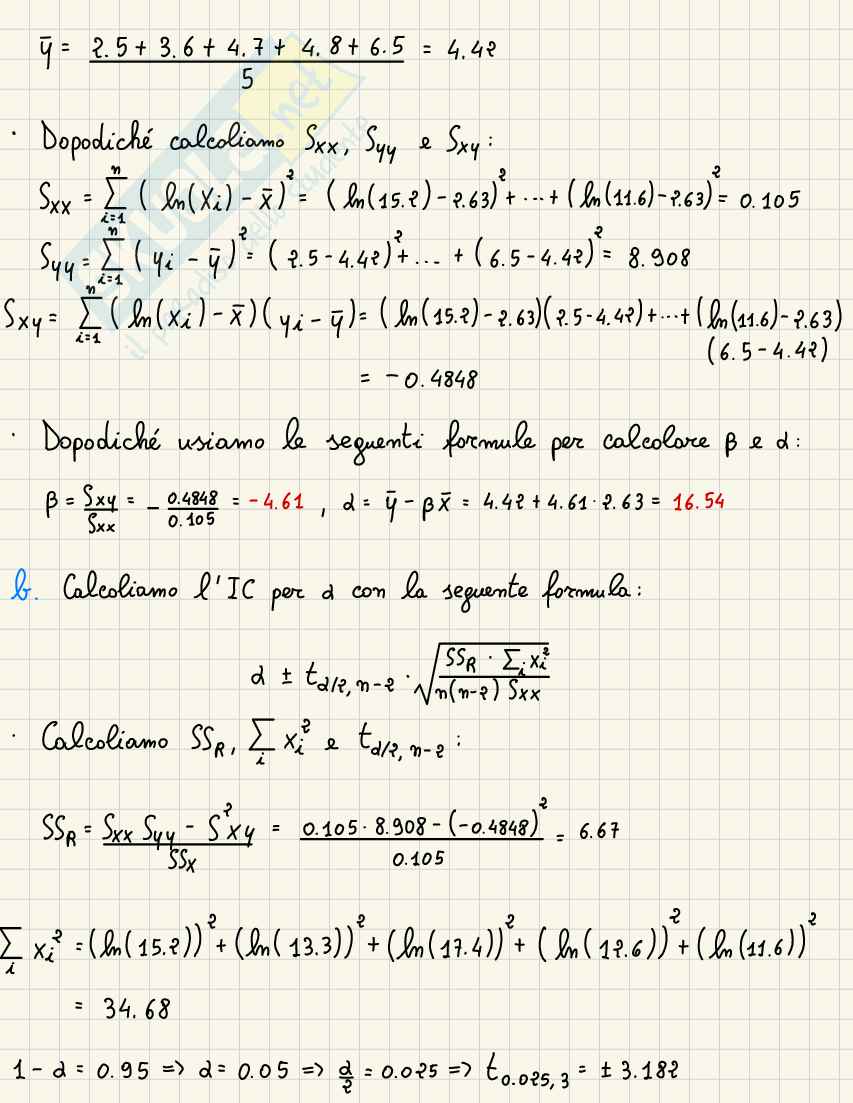 ȳ = (2.5 + 3.6 + 4.7 + 4.8 + 6.5)/5 = 4.42
· Dopodiché calcoliamo Sxx, Syy e Sxy:
Sxx = Σ_{i=1}^{n} (ln(Xi) - x̄)² = (ln(15.2) - 2.63)² + ... + (ln(11.6) - 2.63)² = 0.105
Syy = Σ_{i=1}^{n} (yi - ȳ)² = (2.5 - 4.42)² + ... + (6.5 - 4.42)² = 8.908
Sxy = Σ_{i=1}^{n} (ln(xi) - x̄)(yi - ȳ) = (ln(15.2) - 2.63)(2.5 - 4.42) + ... + (ln(11.6) - 2.63)
(6.5 - 4.42)
= -0.4848
· Dopodiché usiamo le seguenti formule per calcolare β e α:
β = Sxy/Sxx = - 0.4848/0.105 = -4.61 , α = ȳ - βx̄ = 4.42 + 4.61 · 2.63 = 16.54
b. Calcoliamo l'IC per α con la seguente formula:
α ± t_{α/2, n-2} · √(SSR · Σ_i xi² / n(n-2) Sxx)
· Calcoliamo SSR, Σ_i xi² e t_{α/2, n-2} :
SSR = (Sxx Syy - S²xy)/SSx = (0.105 · 8.908 - (-0.4848)²)/0.105 = 6.67
Σ_i xi² = (ln(15.2))² + (ln(13.3))² + (ln(17.4))² + (ln(12.6))² + (ln(11.6))²
= 34.68
1 - α = 0.95 => α = 0.05 => α/2 = 0.025 => t_{0.025, 3} = ± 3.182